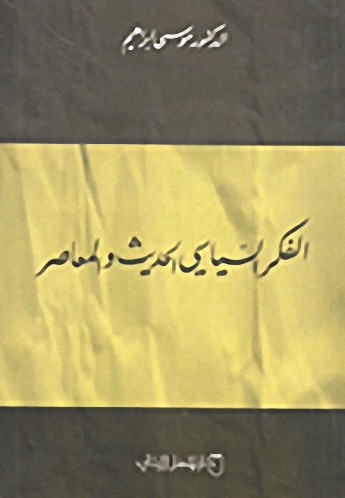 الدكتور موسى ابراهيم
الفكر السياسي الحديث والمعاصر